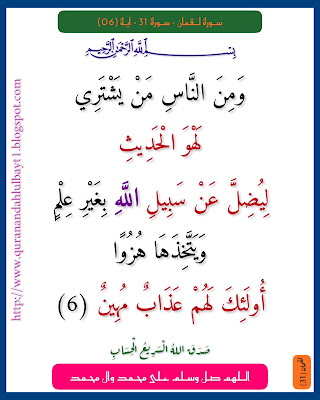 سورة لقمان - سورة 31 - آية (06)
بِسْمِ اللَّهِ الرَّحْمَنِ الرَّحِيمِ
وَمِنَ النَّاسِ مَنْ يَشْتَرِي
لَهْوَ الْحَدِيثِ
لِيُضِلَّ عَنْ سَبِيلِ اللَّهِ بِغَيْرِ عِلْمٍ
وَيَتَّخِذَهَا هُزُوًا
أُولَئِكَ لَهُمْ عَذَابٌ مُهِينٌ (6)
صَدَقَ اللهُ السَّرِيعُ الْحِسَابِ
اللهم صل وسلم على محمد وال محمد
http://www.quranandahlulbayt1.blogspot.com
لقمان (31)